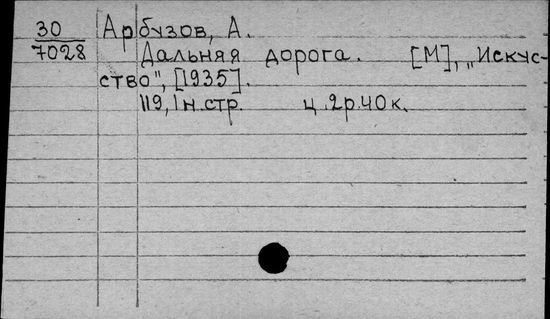 30
7028
Арбузов, А.
Дальняя дорога. [М], „Искус-
ство", [1935].
119, 1 н. стр. ц. 2 р. 40 к.